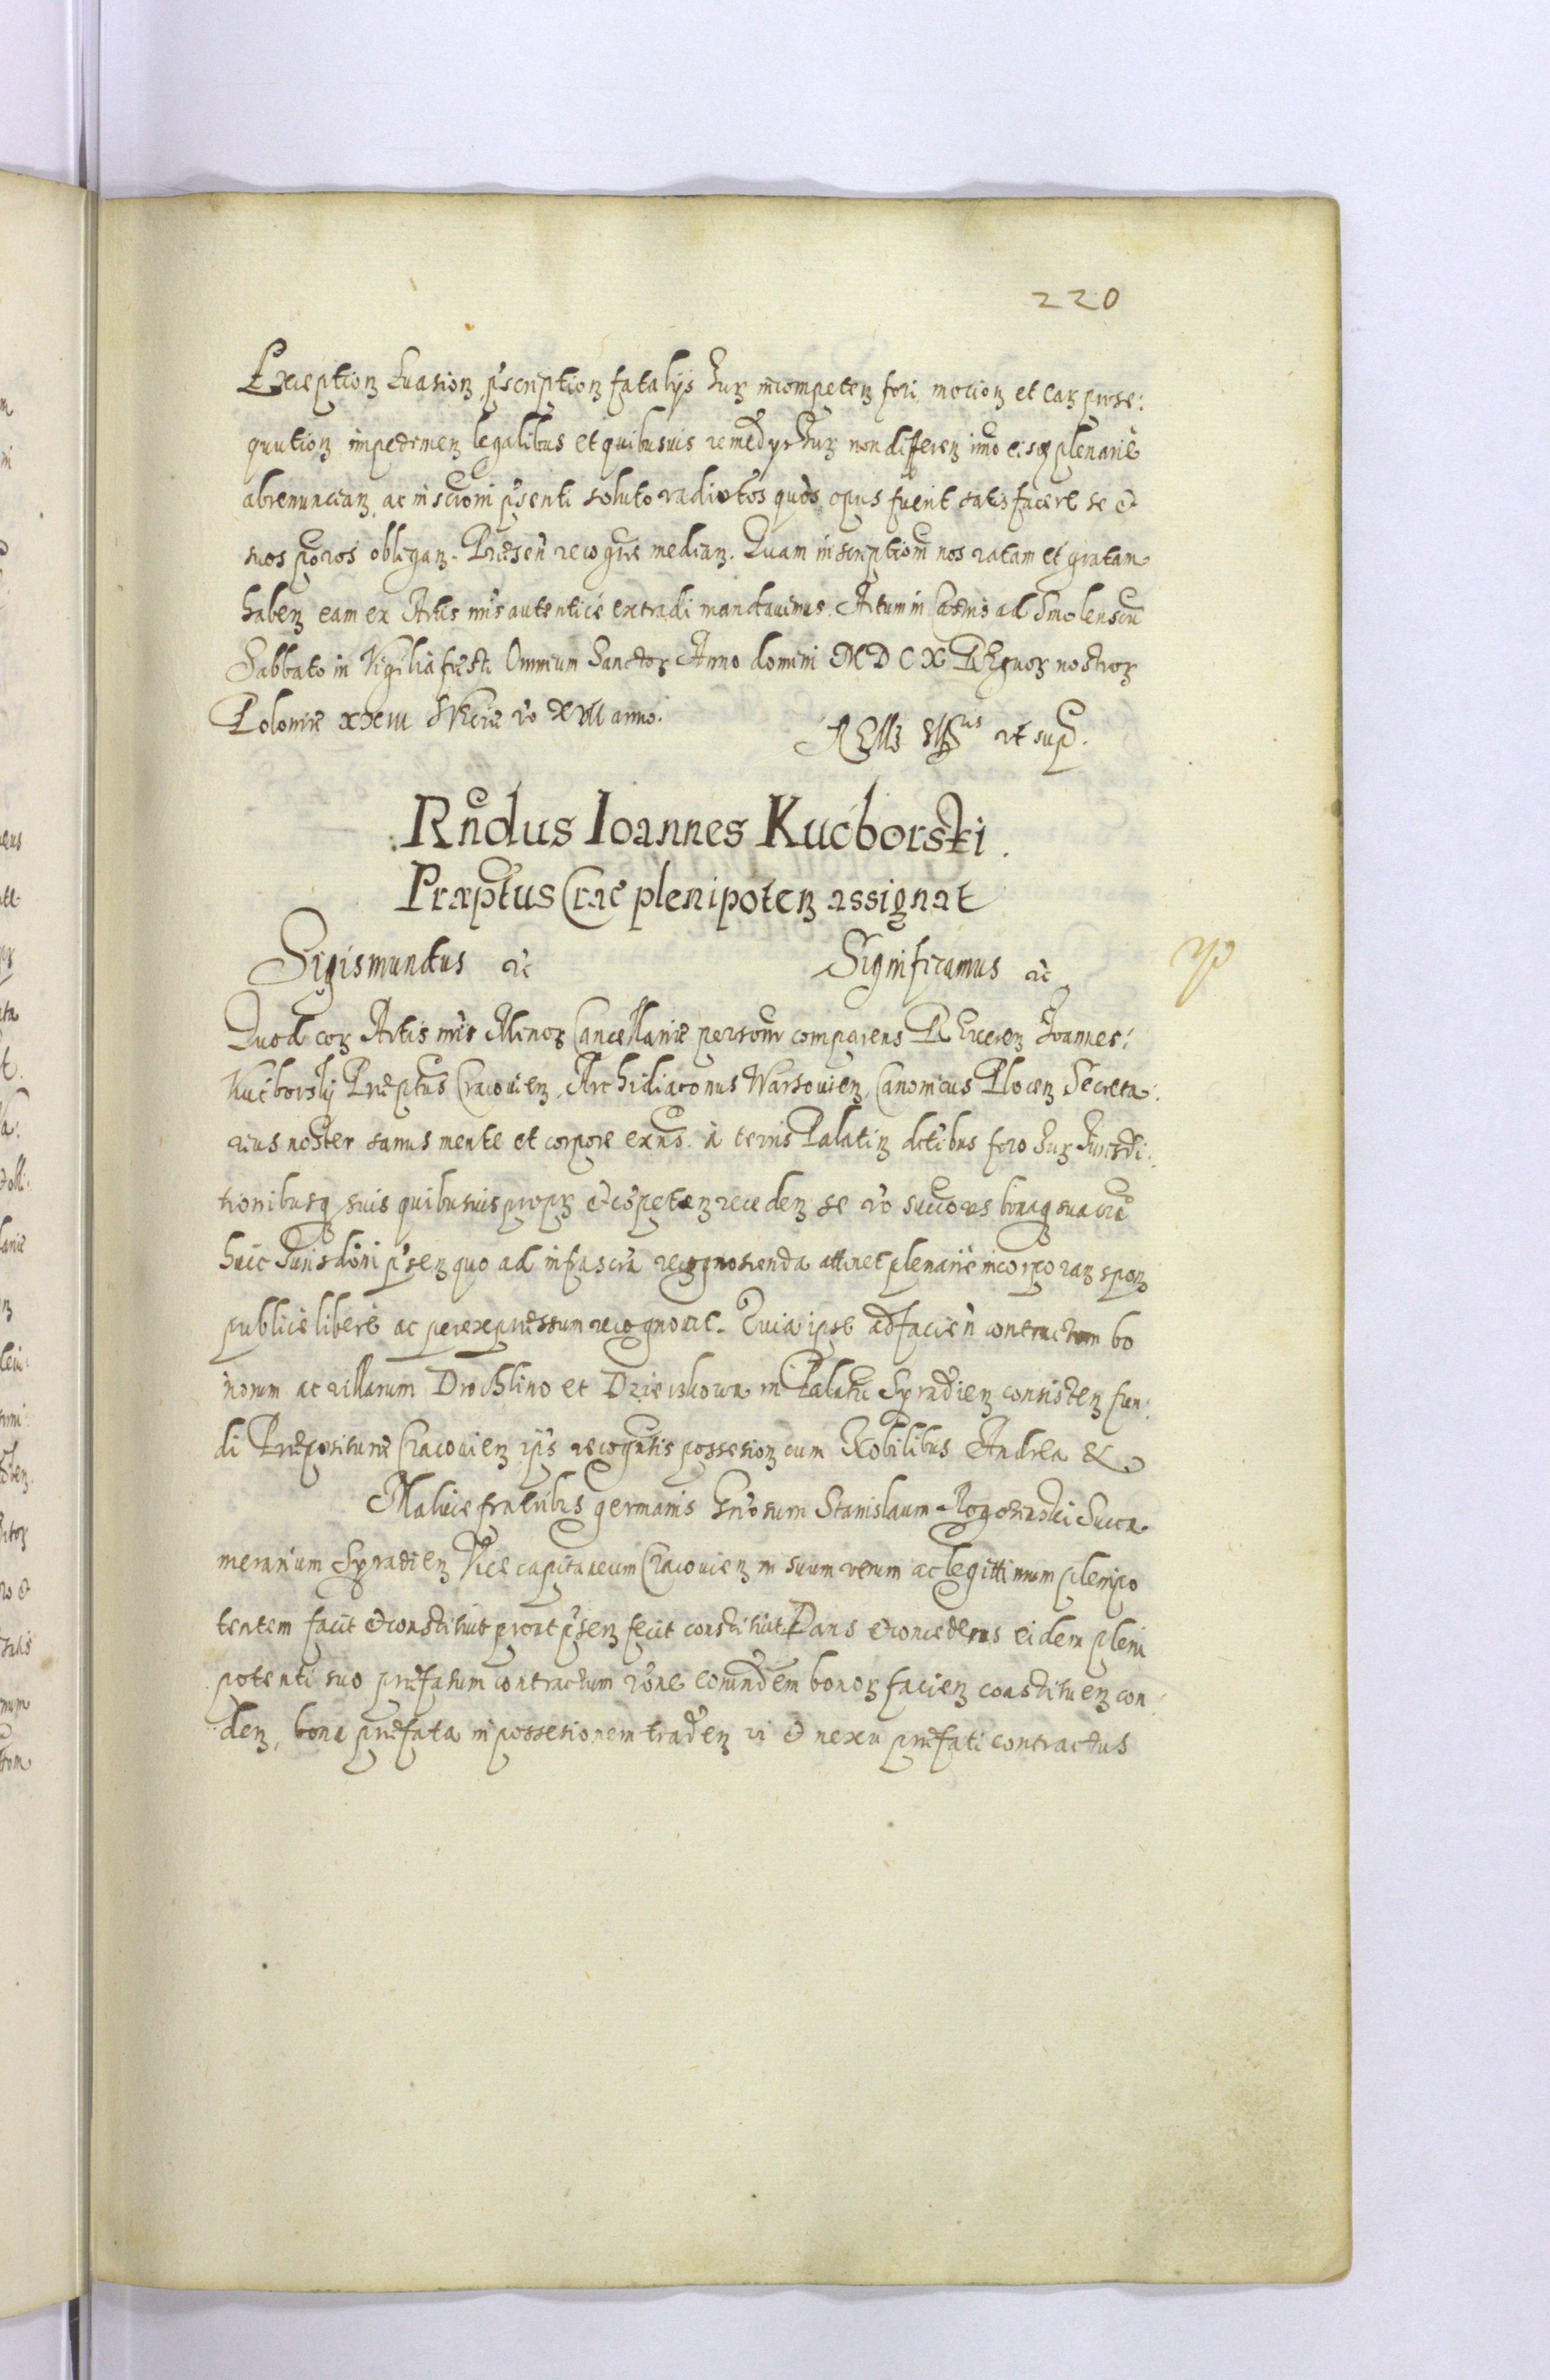 220
Exception Euasion, p'scription fatalijs Iur incompeten fori, motion et ear prose:
qution impedimen legalibus et quibusuis remedys Iur non differen imo eisq plenarie
abrenuncian, ac inscrioni p'senti soluto radio tos quos opus fuerit satisfacere se et
suos oblgan. Præsen recognis median. Quam inscriptiom nos ratam et gratam
haben eam ex Actis nris autenticè extradi mandauimus. Actum in Castris ad Smolenscu
Sabbato in Vigilia festi Omnium Sanctor Anno domini MDCX REgnor nostror
Poloniæ XXIII SVeciæ vo XVII anno.
ut sup.
Rndus Ioannes Kucborski
Præptus Crac plenipoten assignat
Sigismundus etc
Significamus etc
Quod cor Actis nris Minor Cancellariæ personr comparens REveren Ioannes:
Kucborskj Præptus Cracouien, Archidiaconus Warsouien, Canonicus Plocen Secreta:
rius noster sanus mente et corpore exns. à terris Palatin dctibus foro Iur Iurisdi:
tionibusq suis quibusuis propr et copeten receden se vo succores bonaq sua oia
huic Iurisdoni p'sen quo ad infrascra recognoscenda attinet plenariè incorporan spon
publicè liberè ac per expressum recognouit. Quia ipse ad facien contractum bo
norum ac villarum Drochlino et Dzierzkowa in Palatu Syradien consisten fun:
di Præpositure Cracouien ips recogntis possesion cum Nobilibus Andrea &
fratribus germanis Gnosum Stanislaum Succa
merarium Syradien Vice capitaneum Cracouien in suum verum ac legittimum plenipo
tentem facit et constituit prout p'sen fecit constituit Dans et concedens eidem pleni
potenti suo præfatum contractum rone eorundem bonor facien constituen con:
den, bona præfata in possesionem traden vi et nexu præfati contractus